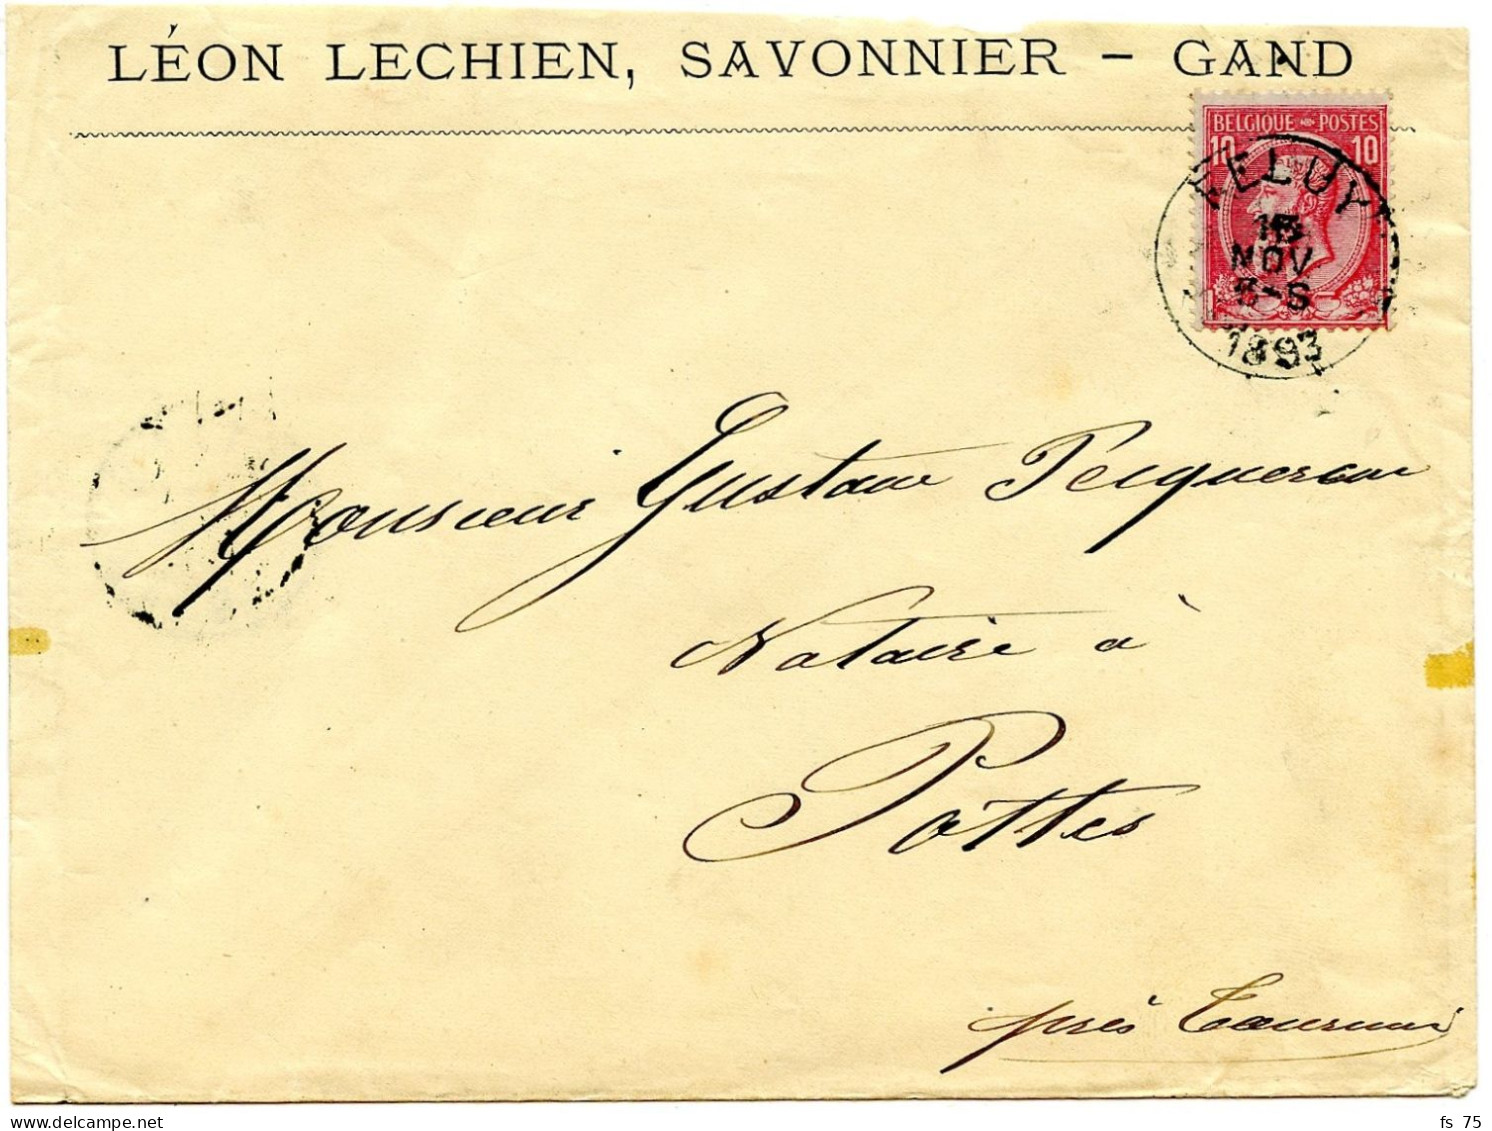 LÉON LECHIEN, SAVONNIER – GAND
BELGIQUE POSTES
10 10
FELUY
15
NOV
5-S
1893
Monsieur Gustave Pecquereau
Notaire à
Pottes
près Tournai
fs 75